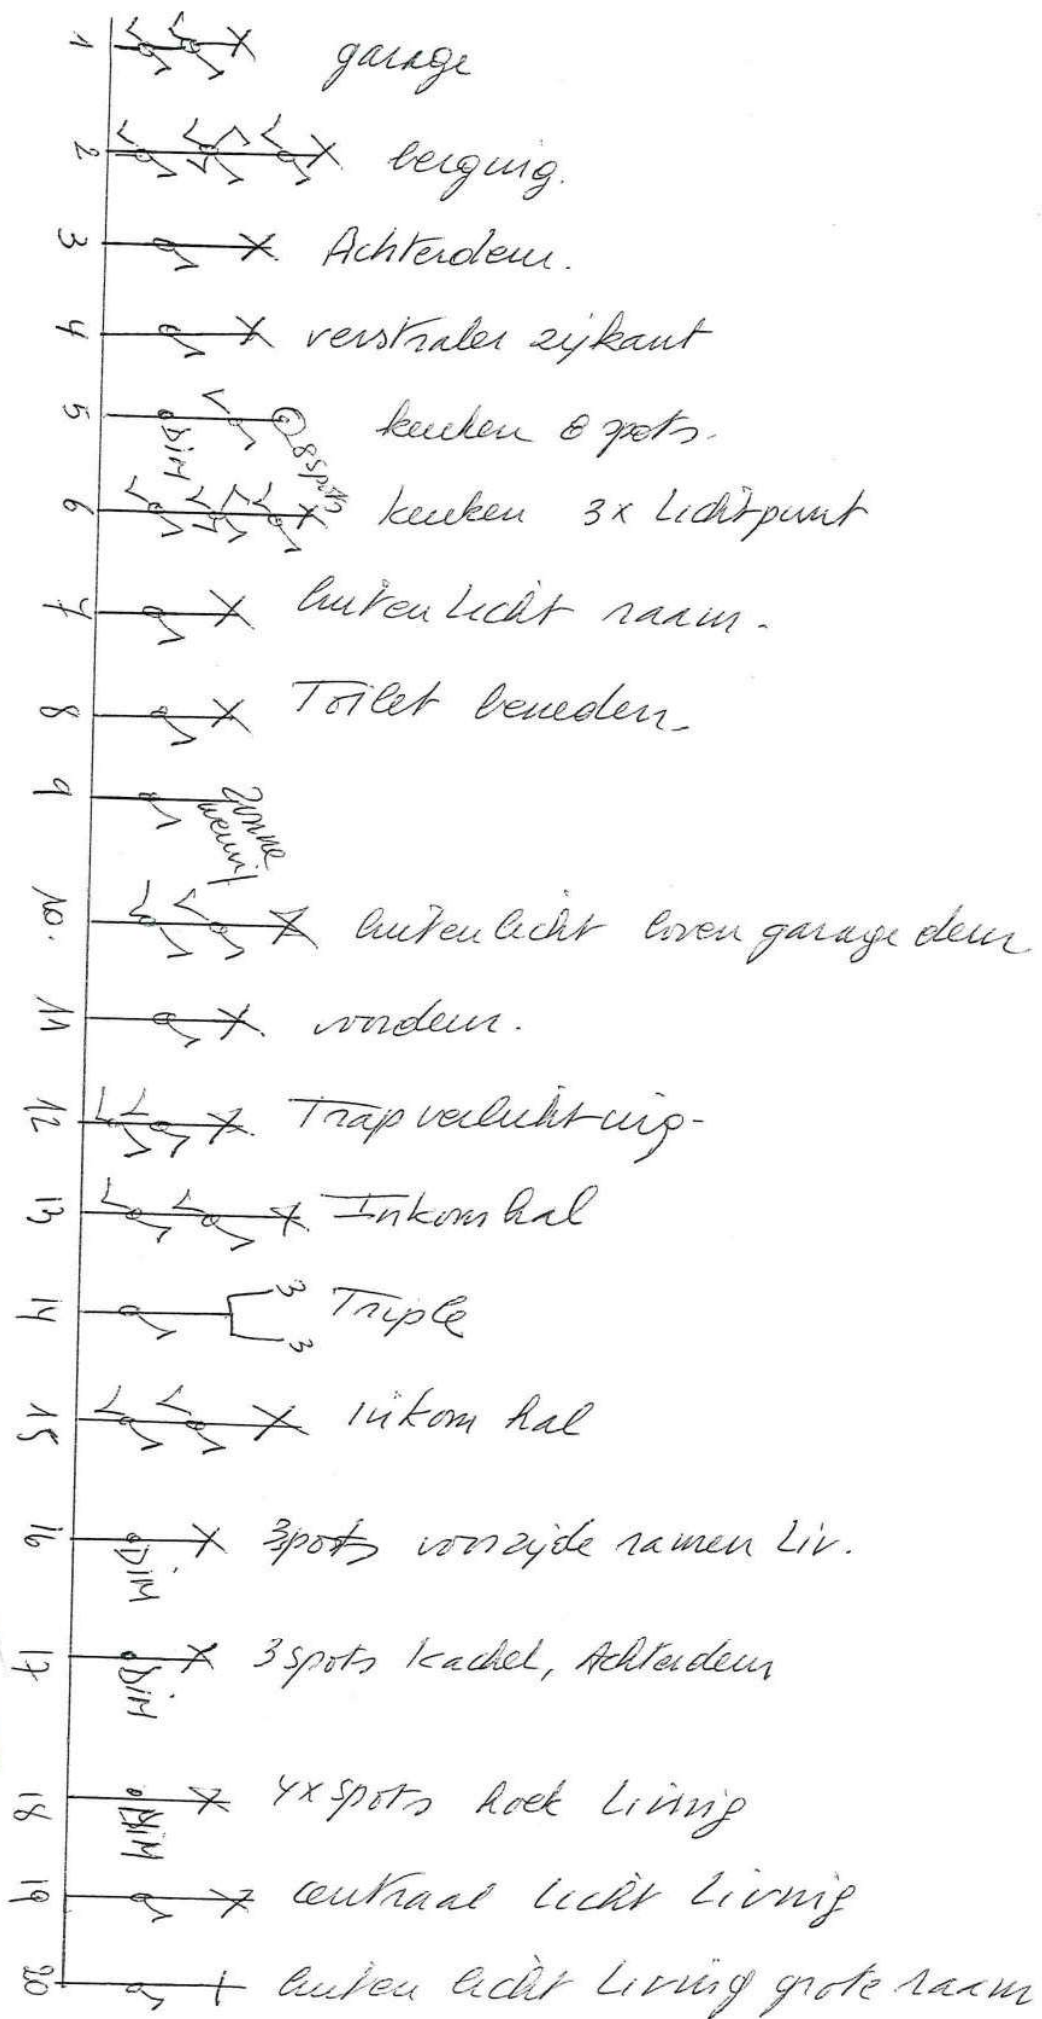 1 garage
2 berging.
3 Achterdeur.
4 verstraler zijkant
5 DiM 8 spots keuken 8 spots.
6 keuken 3x Lichtpunt
7 buiten licht raam.
8 Toilet beneden
9 Zonne
10. buiten licht boven garage deur
11 voordeur.
12 Trap verlichting
13 Inkom hal
14 3 3 Triple
15 inkom hal
16 DiM 3spots voorzijde ramen Liv.
17 DiM 3 spots kachel, Achterdeur
18 DiM 4x spots hoek Living
19 centraal licht Living
20 buiten licht Living grote raam